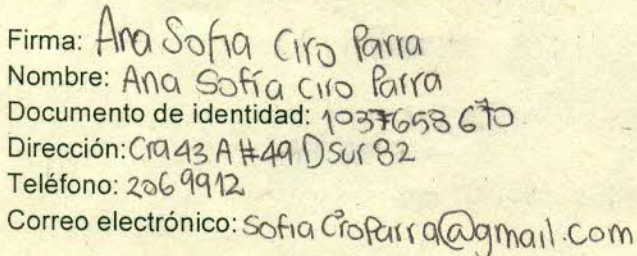 Firma: Ana Sofia Ciro Parra
Nombre: Ana Sofía Ciro Parra
Documento de identidad: 1037658670
Dirección: Cra 43 A #49 D Sur 82
Teléfono: 2069912
Correo electrónico: SofiaCiroParra@gmail.com